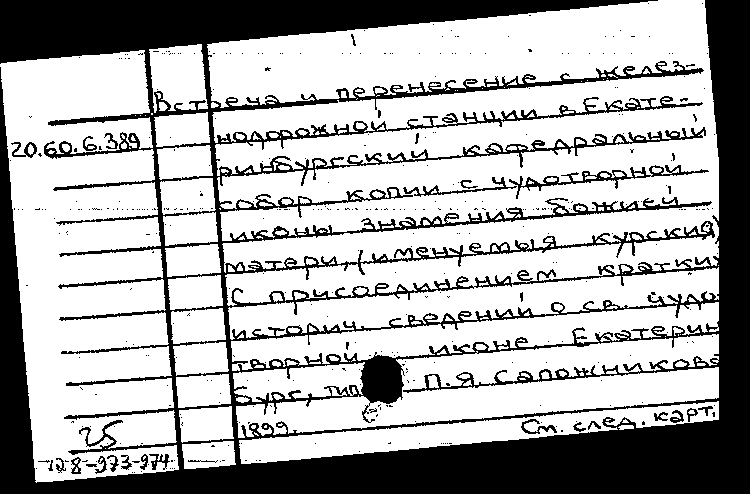 Встреча и перенесение с желез-
20.60.6.389 нодорожной станции в Екате-
ринбургский кафедральный
собор копии с чудотворной
иконы знамения божией
матери, (именуемыя курския)
С присоединением кратких
историч. сведений о св. чудо
творной иконе. Екатерин
бург, тип П.Я. Сапожникова
1899.
См. след. карт.
25
128-973-974